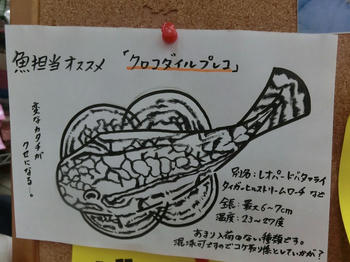 魚担当オススメ 「クロコダイルプレコ」
変なカタチが
クセになる…。
別名：レオパードバタフライ
タイガーヒルストリームローチ など
全長：最大6～7cm
温度：23～27度
あまり入荷のない種類です。
混泳可ですのでコケ取り係としていかが？